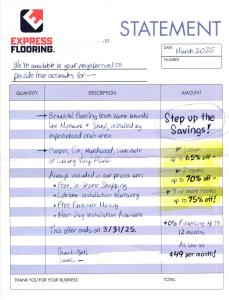 EXPRESS
FLOORING.
STATEMENT
- 01
DATE
March 2025
NUMBER
We're available in your neighborhood to
provide free estimates for —
QUANTITY DESCRIPTION AMOUNT
→ Beautiful flooring from name brands
like Mohawk & Shaw, installed by
experienced craftsmen
Step up the
Savings!
→ Carpet, Tile, Hardwood, Laminate
or Luxury Vinyl Plank
1 room
up to 65% off -
2 rooms
up to 70% off -
3 or more rooms
up to 75% off!
Always included in our prices are:
• Free, In-Home Shopping
• Lifetime Installation Warranty
• Free Furniture Moving
• Next Day Installation Available
This offer ends on 3/31/25.
+0% Financing
12 months
As low as
$49 per month!
Thank you!
THANK YOU FOR YOUR BUSINESS
TOTAL